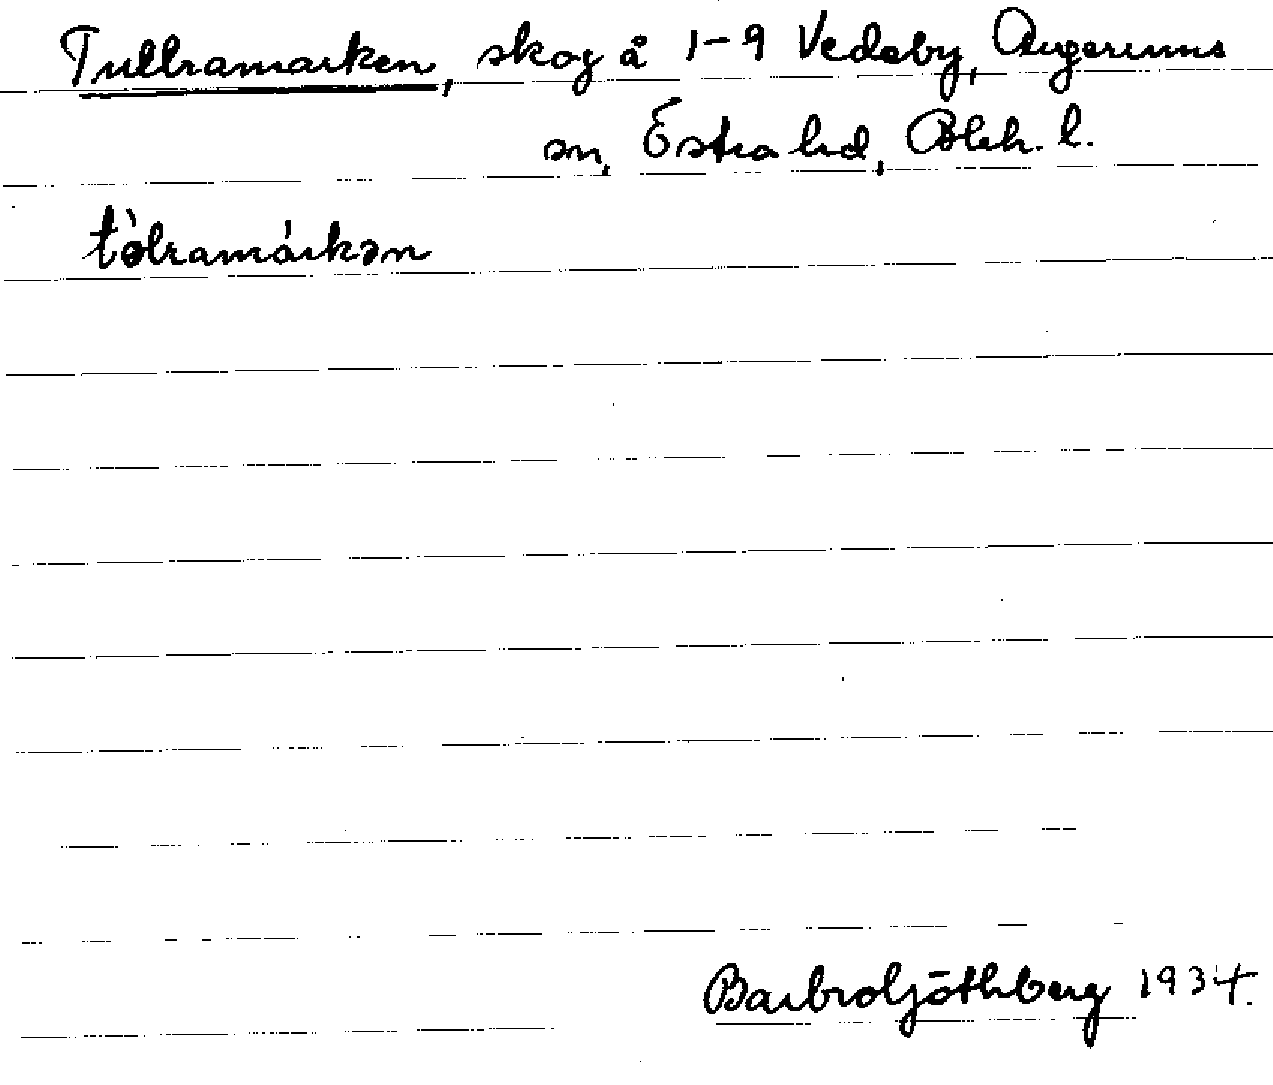 Tullramarken, skog å 1-9 Vedeby, Augerums
sn, Östra hd, Blek. l.
tòlramárkən
Barbro Göthberg 1934.